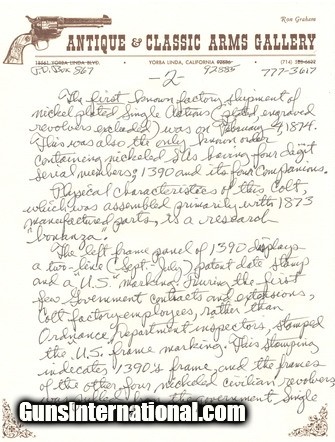 Ron Graham
ANTIQUE & CLASSIC ARMS GALLERY
18561 YORBA LINDA BLVD. • YORBA LINDA, CALIFORNIA 92686 • (714)
P.O. Box 867 92885 777-3617
-2-
The first known factory shipment of
nickel plated Single Actions (plated engraved
revolvers excluded) was on February 9, 1874.
This was also the only known order
containing nickeled SAs having four digit
serial numbers; 1390 and its four companions.
Physical characteristics of this Colt,
which was assembled primarily with 1873
manufactured parts, is a research
"bonanza".
The left frame panel of 1390 displays
a two-line (Sept.-July) patent date stamp
and a U.S. marking. During the first
few Government contracts and extensions,
Colt factory employees, rather than
Ordnance Department inspectors, stamped
the U.S. frame marking. This stamping
indicates 1390's frame, and the frames
of the other four nickeled civilian revolvers
the government Single
GunsInternational.com